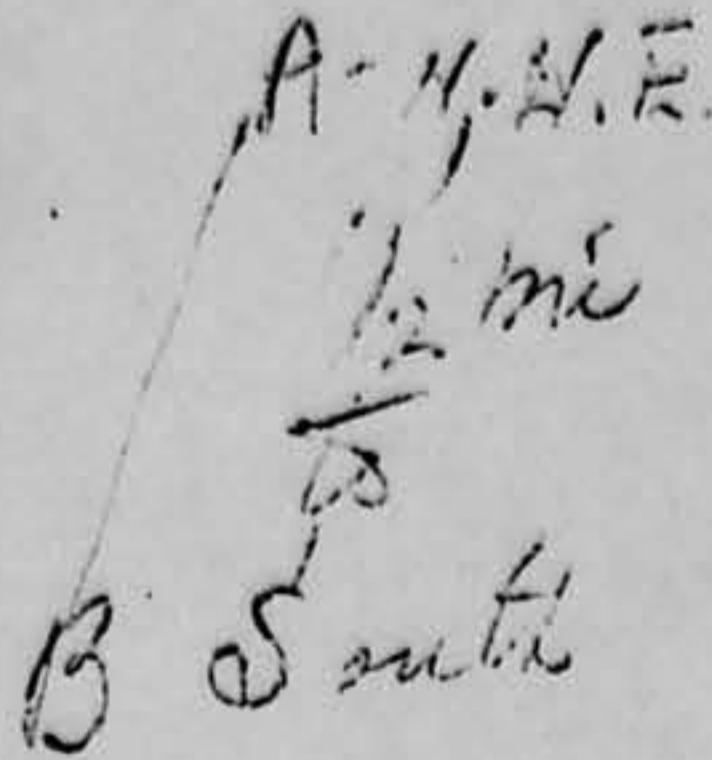 A - N.N.E.
1/2 mi
B South